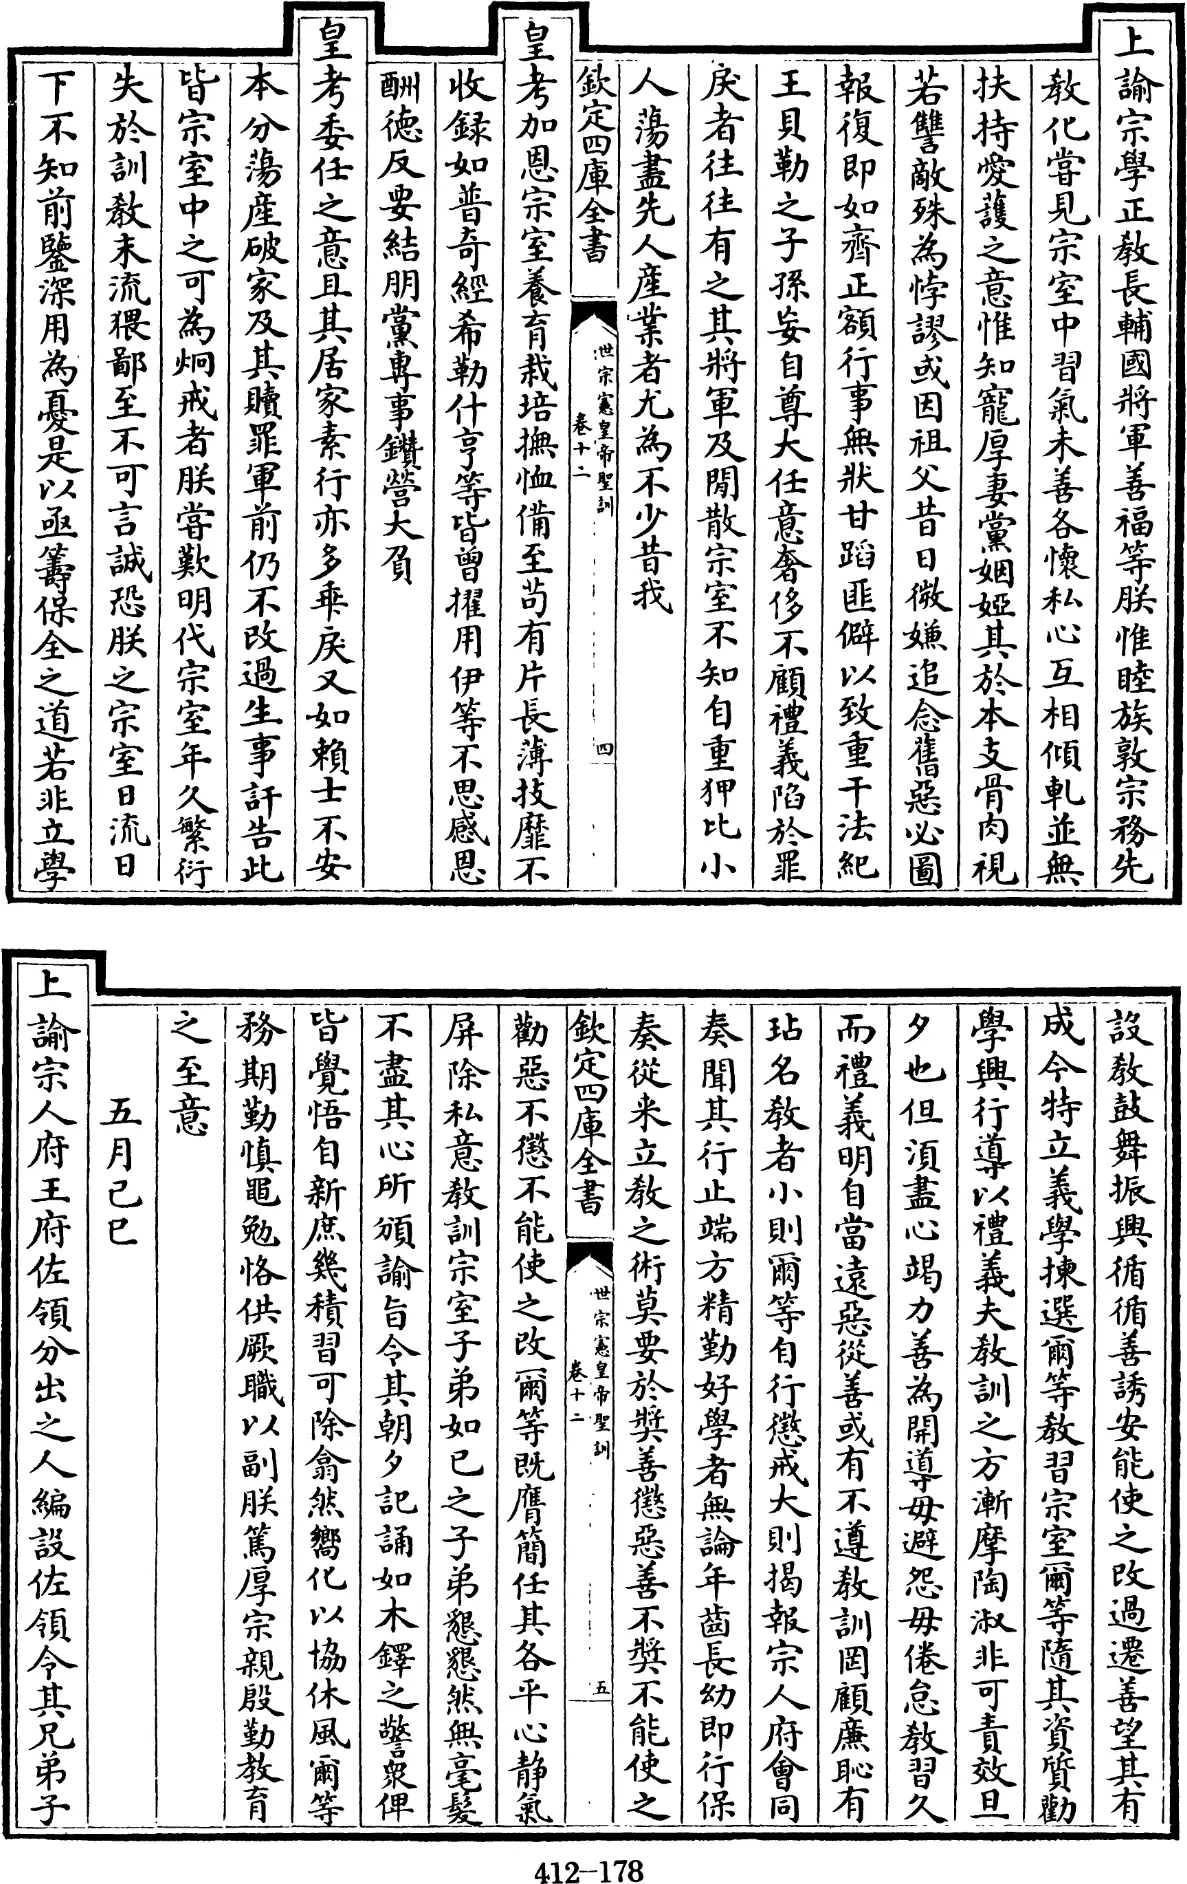 上諭宗學正教長輔國將軍善福等朕惟睦族敦宗務先
教化嘗見宗室中習氣未善各懷私心互相傾軋並無
扶持愛護之意惟知寵厚妻黨姻婭其於本支骨肉視
若讐敵殊為悖謬或因祖父昔日微嫌追念舊惡必圖
報復即如齊正額行事無狀甘蹈匪僻以致重干法紀
王貝勒之子孫妄自尊大任意奢侈不顧禮義陷於罪
戾者往往有之其將軍及閒散宗室不知自重狎比小
人蕩盡先人產業者尤為不少昔我
欽定四庫全書
世宗憲皇帝聖訓
卷十二
四
皇考加恩宗室養育栽培撫恤備至苟有片長薄技靡不
收録如普奇經希勒什亨等皆曾擢用伊等不思感恩
酬德反要結朋黨專事鑽營大負
皇考委任之意且其居家素行亦多乖戾又如賴士不安
本分蕩產破家及其贖罪軍前仍不改過生事訐告此
皆宗室中之可為炯戒者朕嘗歎明代宗室年久繁衍
失於訓教末流猥鄙至不可言誠恐朕之宗室日流日
下不知前鑒深用為憂是以亟籌保全之道若非立學
設教鼓舞振興循循善誘安能使之改過遷善望其有
成今特立義學揀選爾等教習宗室爾等隨其資質勸
學興行導以禮義夫教訓之方漸摩陶淑非可責效旦
夕也但須盡心竭力善為開導毋避怨毋倦怠教習久
而禮義明自當遠惡從善或有不遵教訓罔顧廉恥有
玷名教者小則爾等自行懲戒大則揭報宗人府會同
奏聞其行止端方精勤好學者無論年齒長幼即行保
奏從來立教之術莫要於奬善懲惡善不奬不能使之
欽定四庫全書
世宗憲皇帝聖訓
卷十二
五
勸惡不懲不能使之改爾等既膺簡任其各平心靜氣
屏除私意教訓宗室子弟如已之子弟懇懇然無毫髮
不盡其心所頒諭旨令其朝夕記誦如木鐸之警衆俾
皆覺悟自新庶幾積習可除翕然嚮化以協休風爾等
務期勤慎黽勉恪供厥職以副朕篤厚宗親殷勤教育
之至意
五月己巳
上諭宗人府王府佐領分出之人編設佐領令其兄弟子
412-178